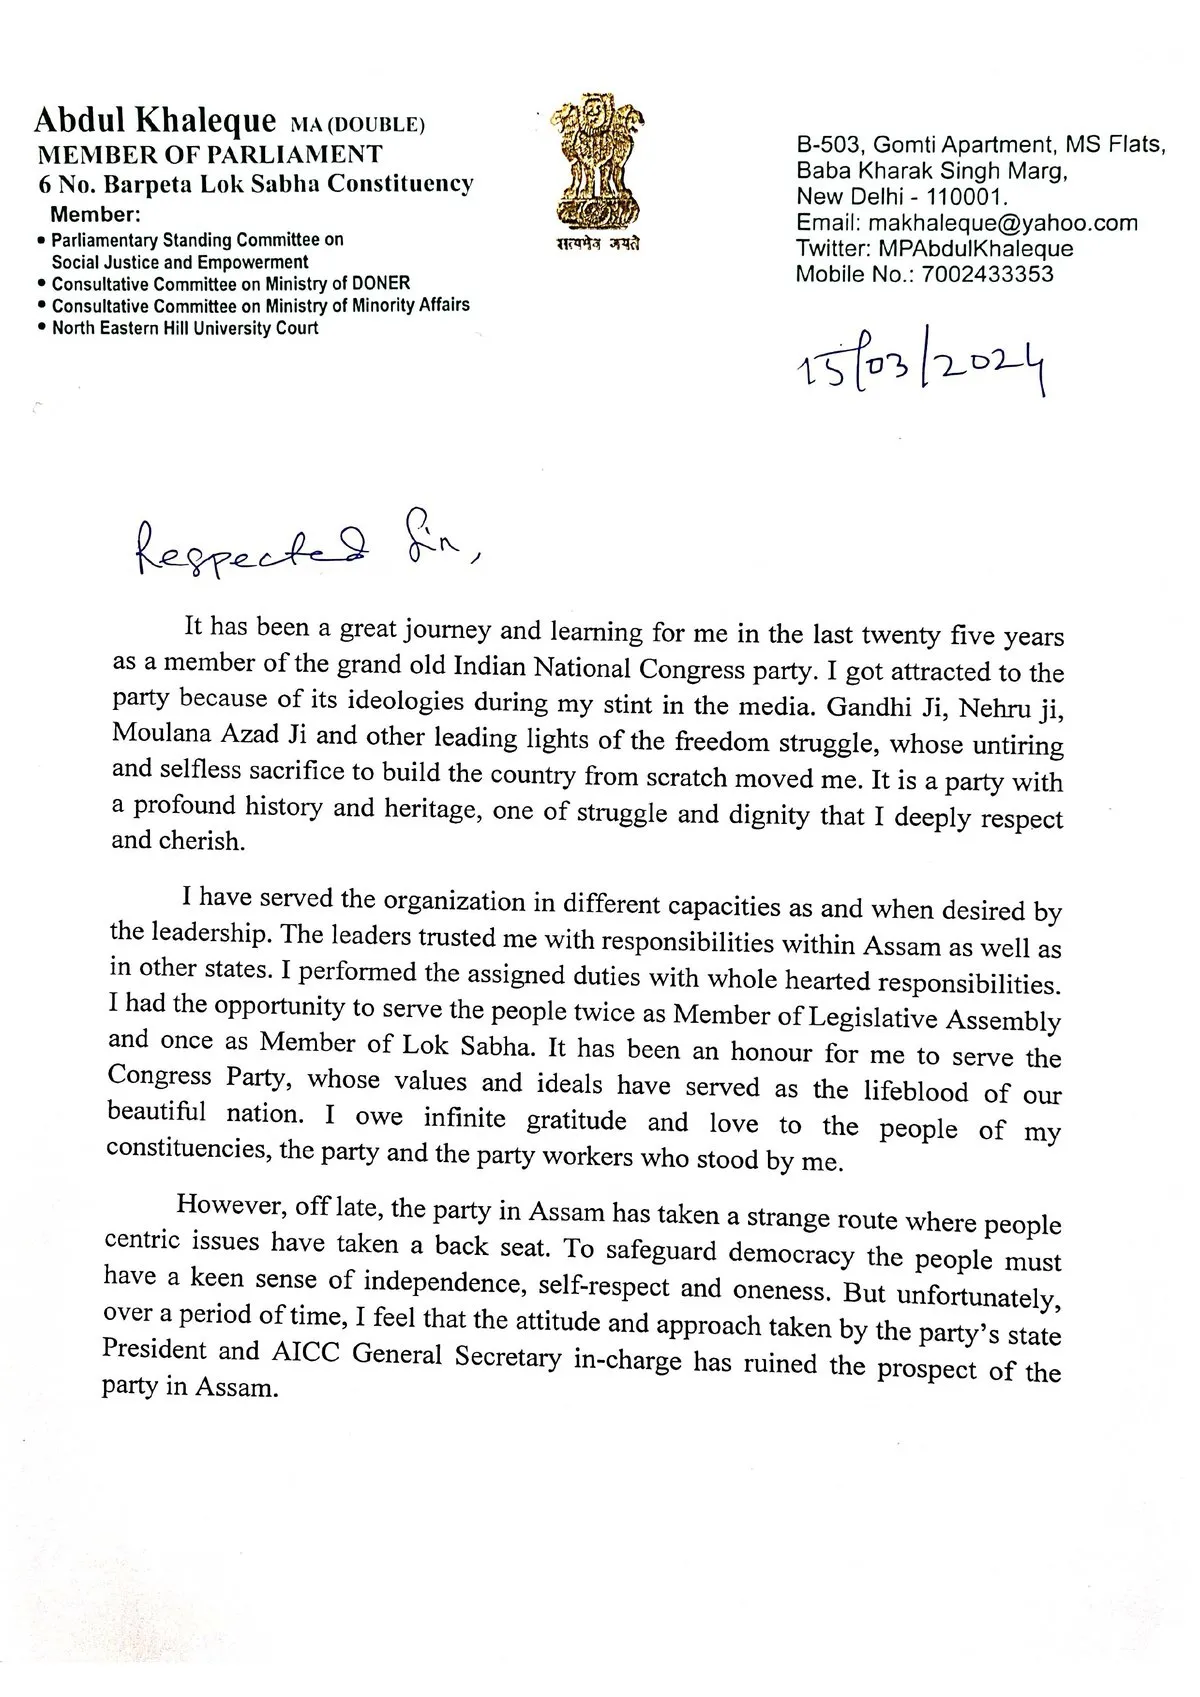 Abdul Khaleque MA (DOUBLE)
MEMBER OF PARLIAMENT
6 No. Barpeta Lok Sabha Constituency
Member:
• Parliamentary Standing Committee on
Social Justice and Empowerment
• Consultative Committee on Ministry of DONER
• Consultative Committee on Ministry of Minority Affairs
• North Eastern Hill University Court
सत्यमेव जयते
B-503, Gomti Apartment, MS Flats,
Baba Kharak Singh Marg,
New Delhi - 110001.
Email: makhaleque@yahoo.com
Twitter: MPAbdulKhaleque
Mobile No.: 7002433353
15/03/2024
Respected Sir,
It has been a great journey and learning for me in the last twenty five years
as a member of the grand old Indian National Congress party. I got attracted to the
party because of its ideologies during my stint in the media. Gandhi Ji, Nehru ji,
Moulana Azad Ji and other leading lights of the freedom struggle, whose untiring
and selfless sacrifice to build the country from scratch moved me. It is a party with
a profound history and heritage, one of struggle and dignity that I deeply respect
and cherish.
I have served the organization in different capacities as and when desired by
the leadership. The leaders trusted me with responsibilities within Assam as well as
in other states. I performed the assigned duties with whole hearted responsibilities.
I had the opportunity to serve the people twice as Member of Legislative Assembly
and once as Member of Lok Sabha. It has been an honour for me to serve the
Congress Party, whose values and ideals have served as the lifeblood of our
beautiful nation. I owe infinite gratitude and love to the people of my
constituencies, the party and the party workers who stood by me.
However, off late, the party in Assam has taken a strange route where people
centric issues have taken a back seat. To safeguard democracy the people must
have a keen sense of independence, self-respect and oneness. But unfortunately,
over a period of time, I feel that the attitude and approach taken by the party's state
President and AICC General Secretary in-charge has ruined the prospect of the
party in Assam.